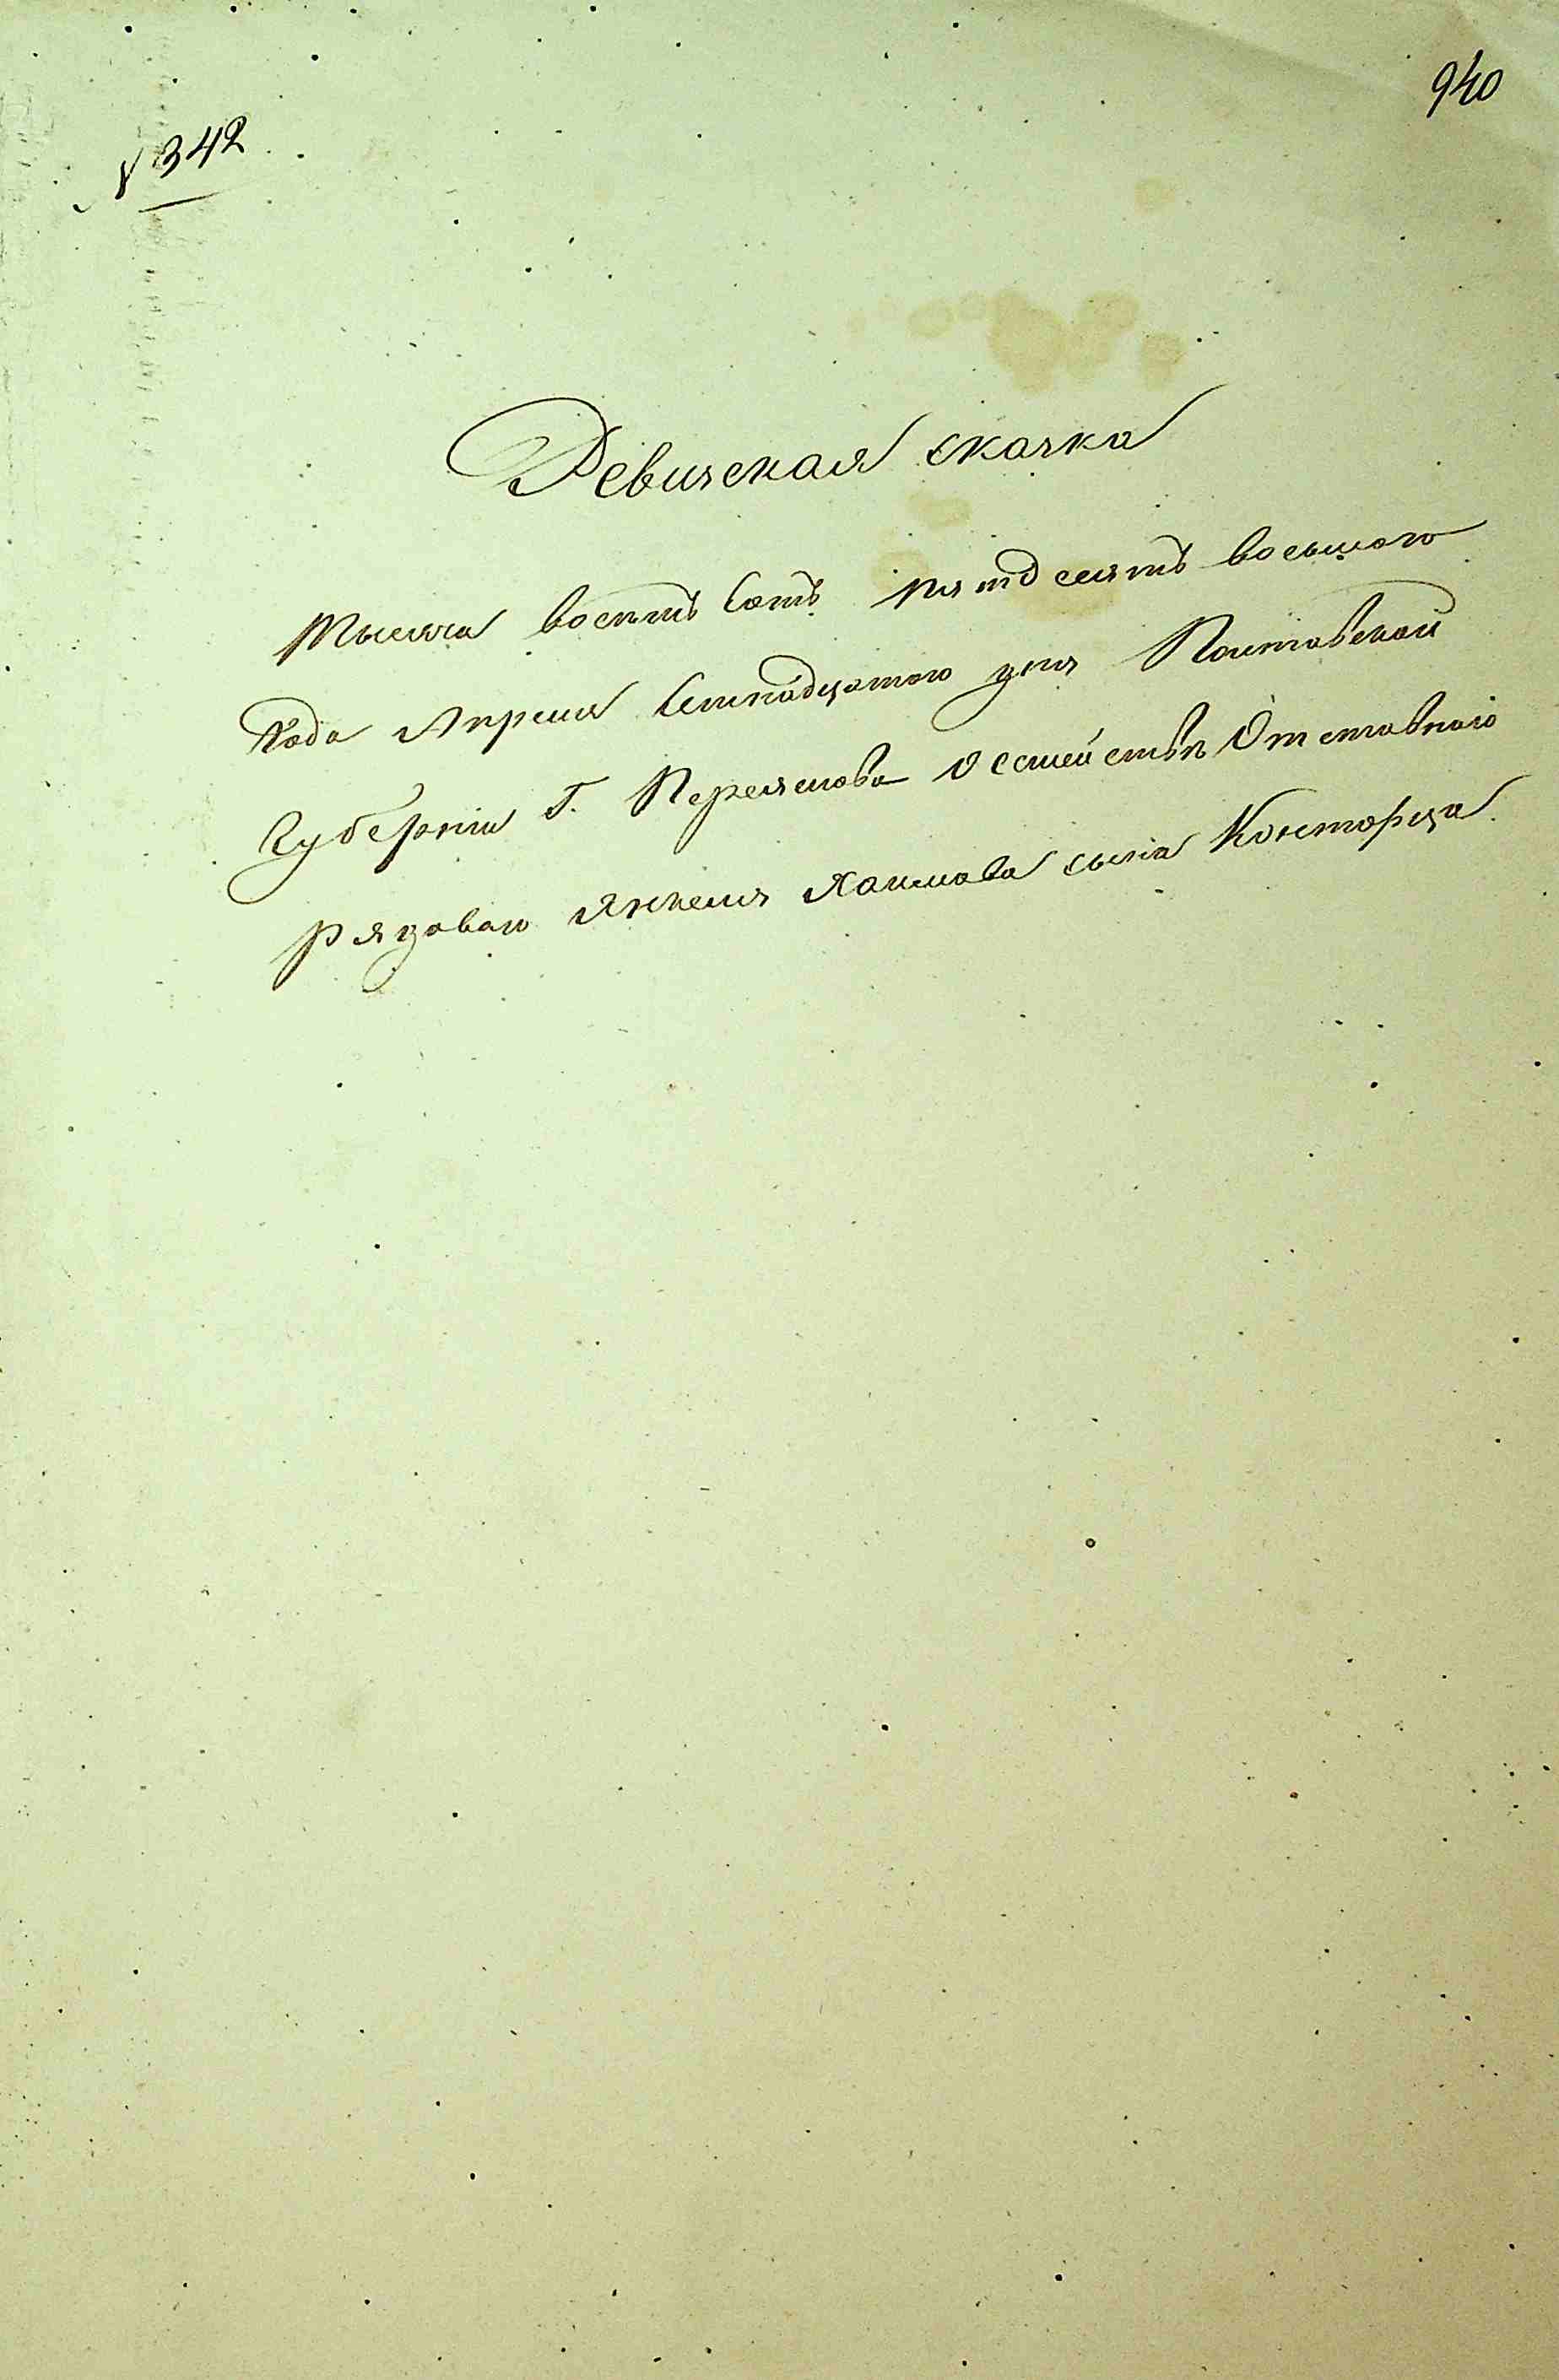 940
№ 342
Ревизская сказка
Тысяча восемь сотъ пятдесятъ восьмого
года Апреля Семнадцатого дня Полтавской
Губерніи Г. Переяслова О семействѣ Отставного
рядоваго Янкеля Хаимова сына